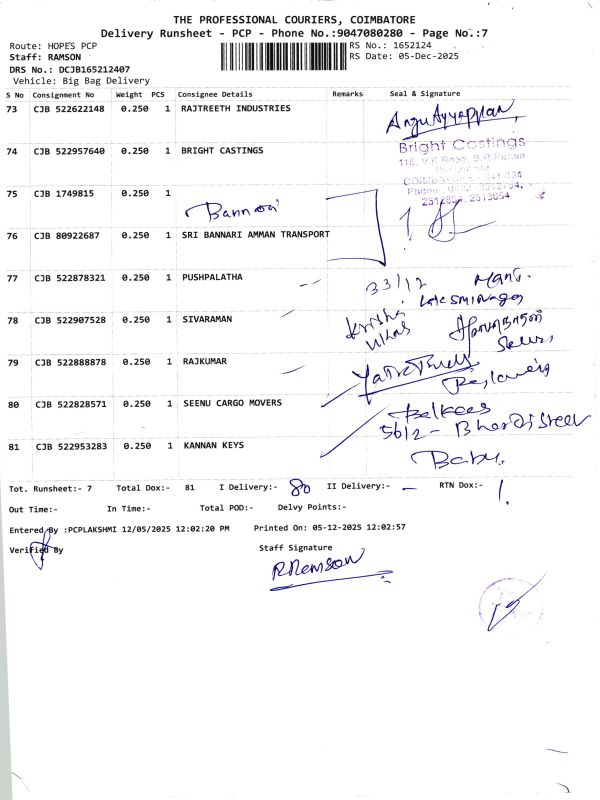 THE PROFESSIONAL COURIERS, COIMBATORE
Delivery Runsheet - PCP - Phone No.:9047080280 - Page No.:7
Route: HOPES PCP RS No.: 1652124
Staff: RAMSON RS Date: 05-Dec-2025
DRS No.: DCJB165212407
Vehicle: Big Bag Delivery
S No Consignment No Weight PCS Consignee Details Remarks Seal & Signature
73 CJB 522622148 0.250 1 RAJTREETH INDUSTRIES
74 CJB 522957640 0.250 1 BRIGHT CASTINGS
Bright Castings
75 CJB 1749815 0.250 1
Bannari
76 CJB 80922687 0.250 1 SRI BANNARI AMMAN TRANSPORT
77 CJB 522878321 0.250 1 PUSHPALATHA
33/12
78 CJB 522907528 0.250 1 SIVARAMAN
79 CJB 522888878 0.250 1 RAJKUMAR
80 CJB 522828571 0.250 1 SEENU CARGO MOVERS
Belkees
81 CJB 522953283 0.250 1 KANNAN KEYS
Babu.
Tot. Runsheet:- 7 Total Dox:- 81 I Delivery:- 80 II Delivery:- - RTN Dox:- 1.
Out Time:- In Time:- Total POD:- Delvy Points:-
Entered By :PCPLAKSHMI 12/05/2025 12:02:20 PM Printed On: 05-12-2025 12:02:57
Verified By Staff Signature